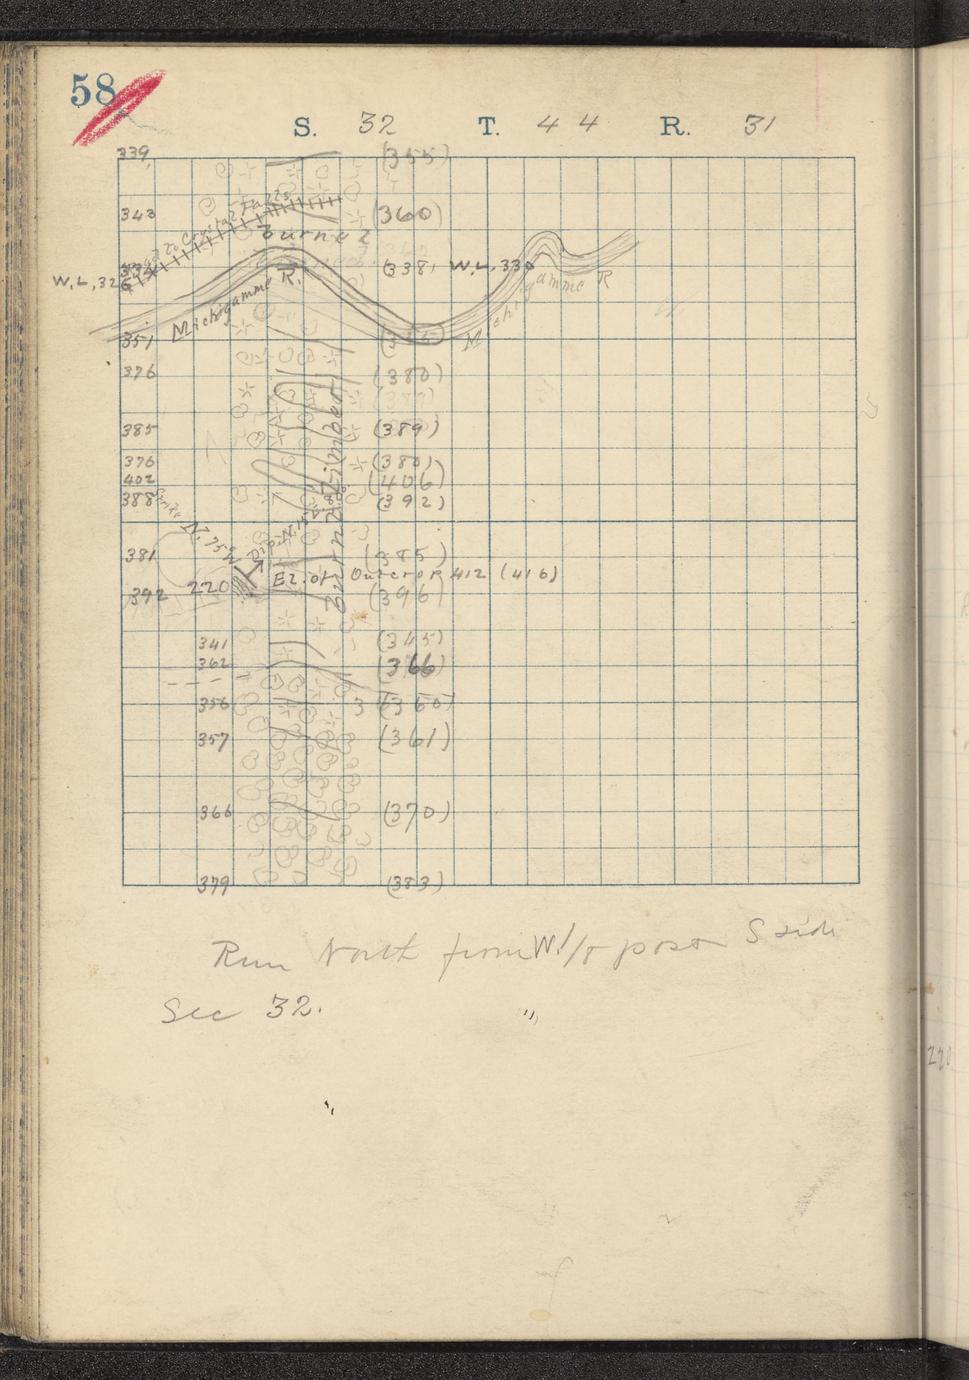 58
S. 32 T. 44 R. 31
339 (355)
343 (360)
to Crystal Falls
Burned
W.L. 326 (338) W.L. 330
Michigamme R. Michigamme R
351
376 (380)
385 (389)
376 (380)
402 (406)
388 (392)
Burnd Timber
Strike N. 75 W
Dip N. 15
381 (385)
220 El. of Outcrop 412 (416)
392 (396)
341 (345)
362 (366)
356 (360)
357 (361)
366 (370)
379 (383)
Run North from W 1/8 post S side
Sec 32.